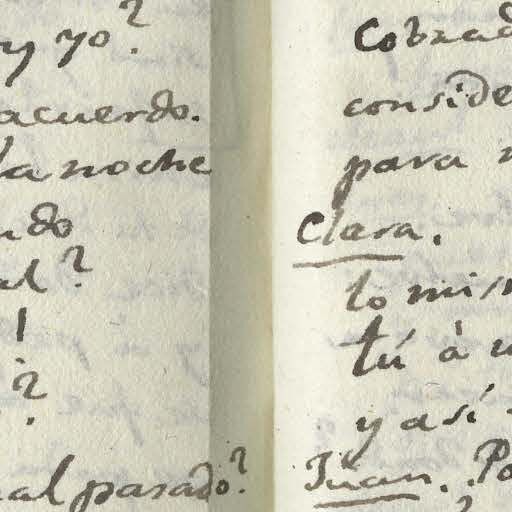 y yo?
acuerdo.
la noche
ndo
al?
!
?
al pasado?
Cobrad
conside
para n
Clara.
lo mis
tú à u
y así
Juan. Po